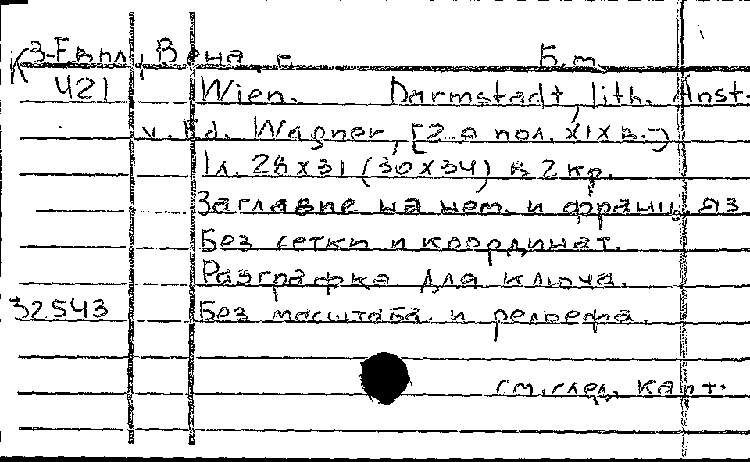 К 3-Евпл, Вена, г. Б.м.
421 Wien. Darmstadt, lith. Anst.
v. Ed. Wagner, [2-я пол. XIX в.]
1 л. 28х31 (30х34) в 2 кр.
Заглавие на нем. и франц. яз.
Без сетки и координат.
Разграфка для ключа.
32543 Без масштаба и рельефа.
см. след. карт.